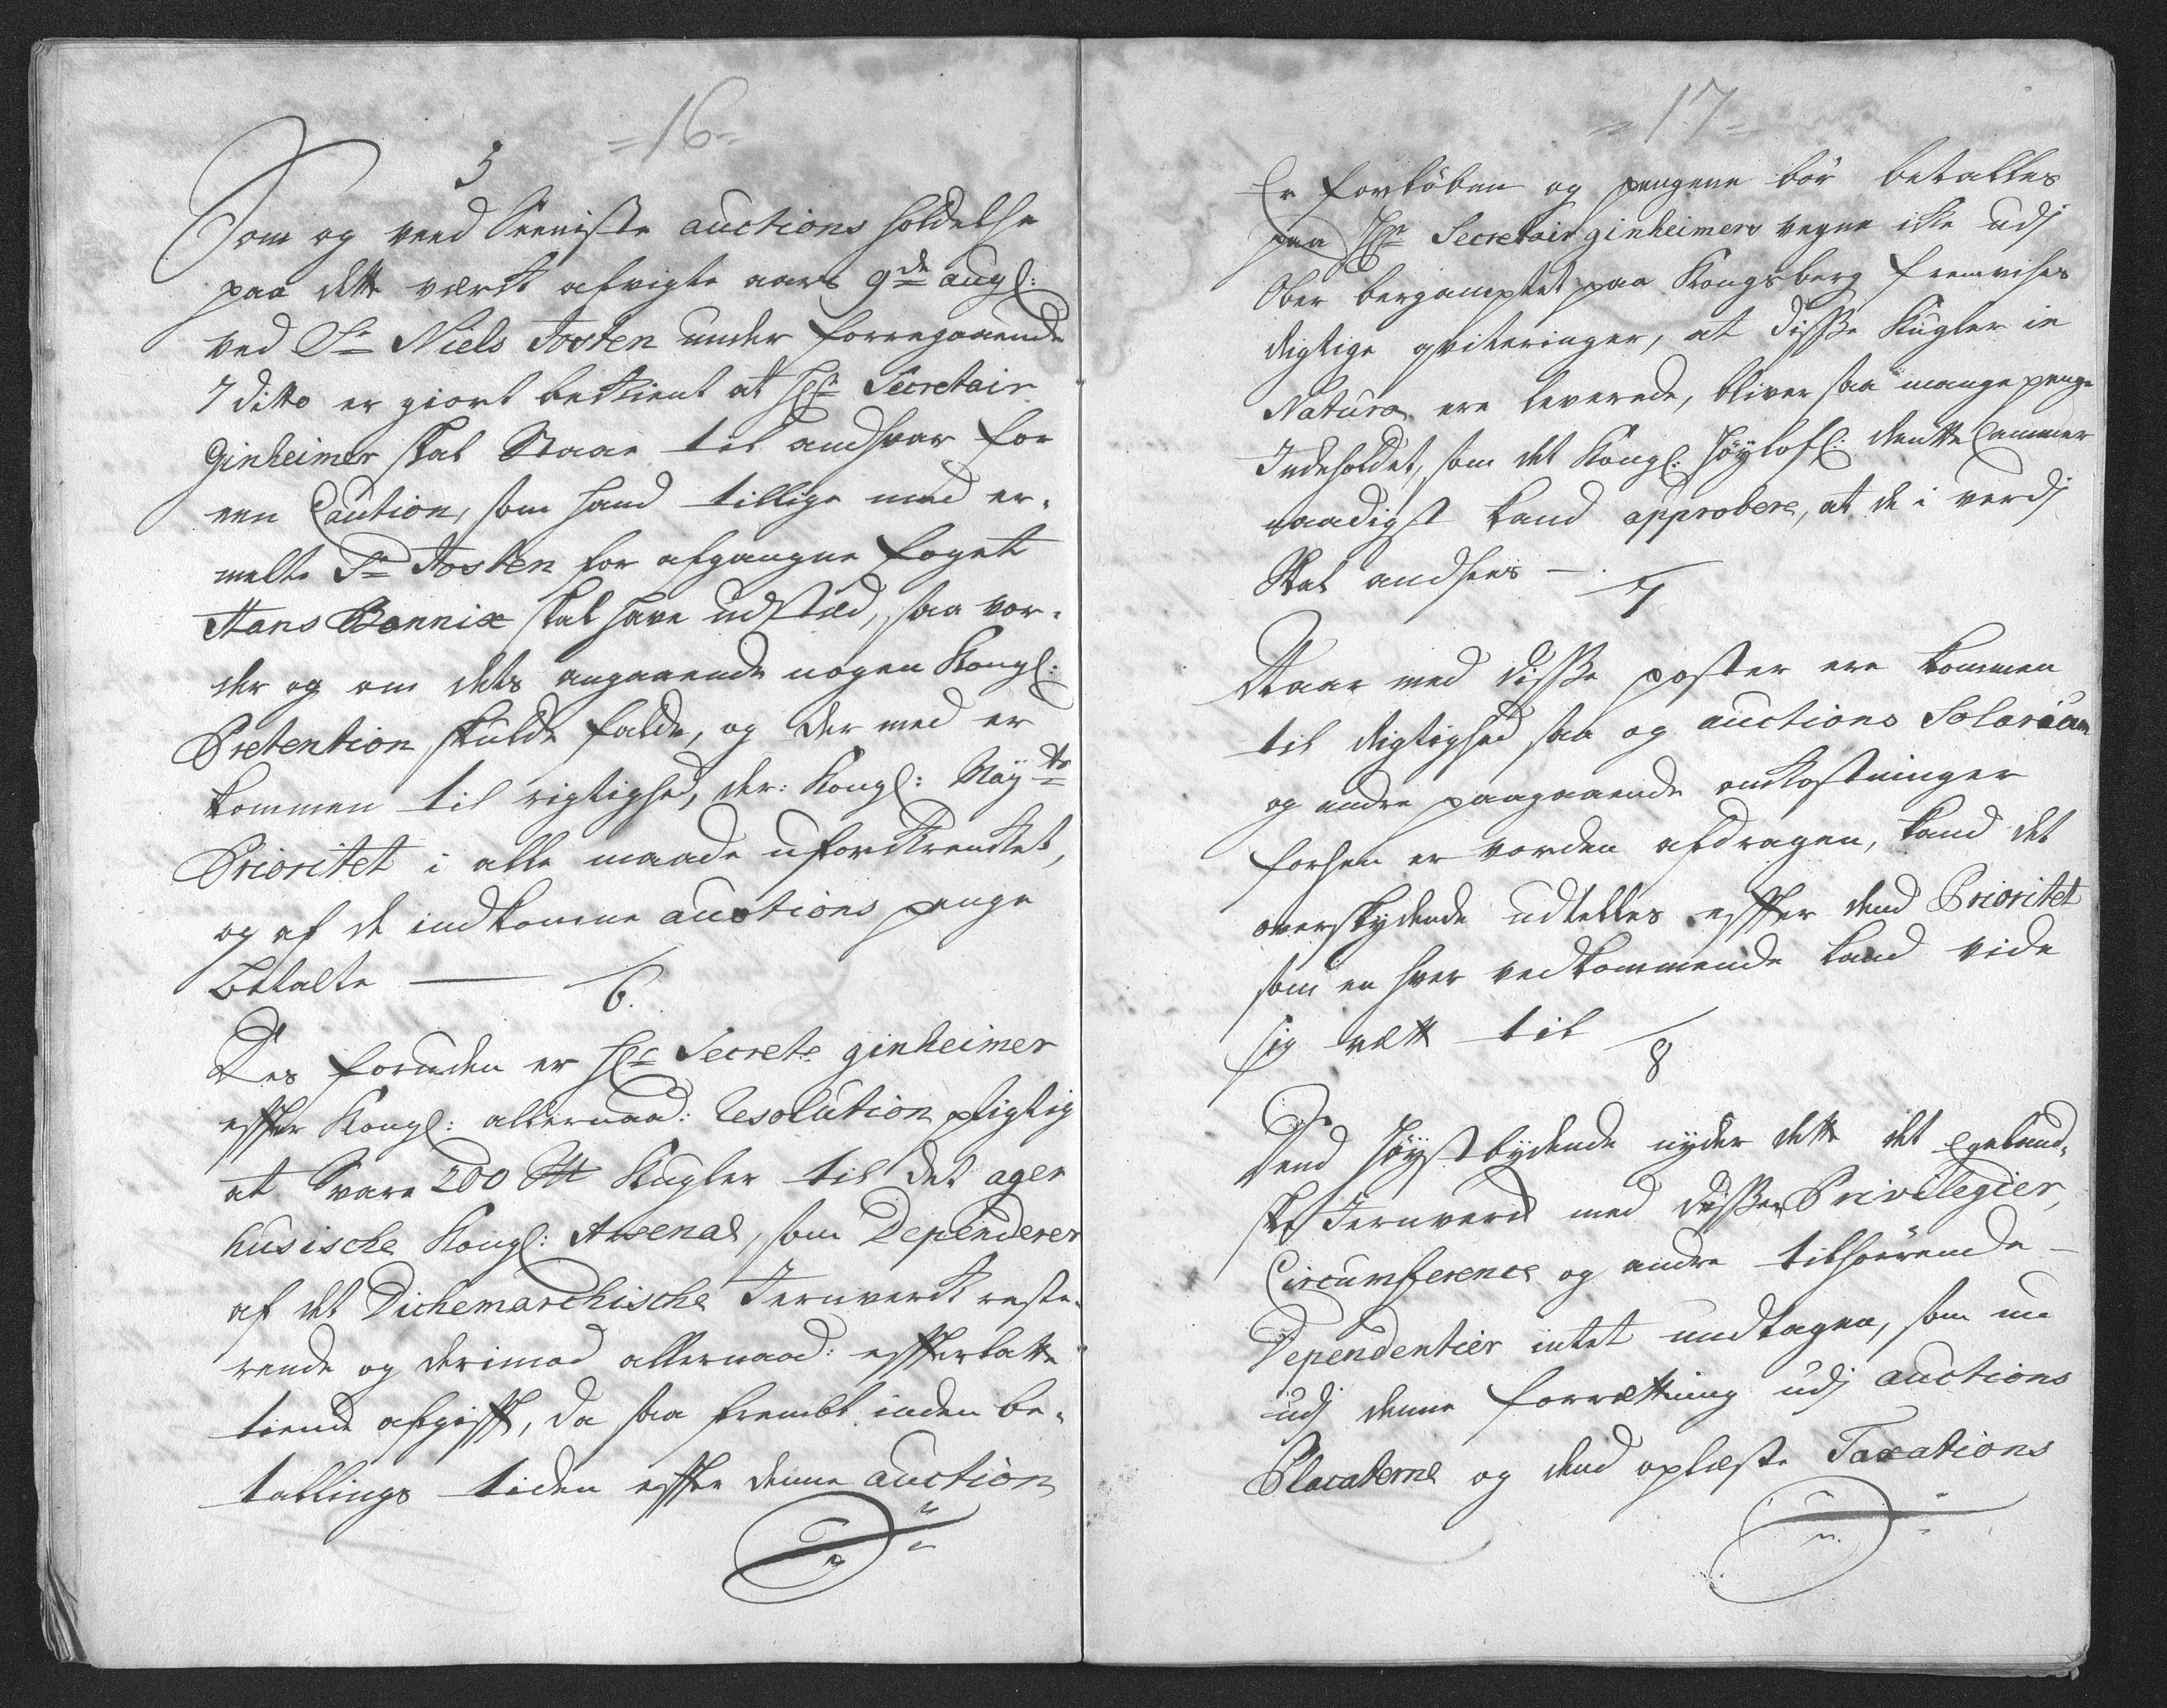 =16=
5
Som og veed Seeniste auctions holdelse
paa dette værck afvigte aars 9de augl:
ved Sr Niels Tosten under forregaaende
7 ditto er giort bekient at Hr Secretair
Ginheimer skal Staae til andsvar for
een Caution, som hand tillige med er-
melte Sr Tosten for afgangne foget
Hans Bennix skal have udsted, saa vor-
der og om dets angaaende nogen Kongl:
Pretention skulde falde, og der med er
kommen til rigtighed, der: Kongl: Mayts
Prioritet i alle maade uforkrencket,
og af de indkomne auctions penge
Betalte —
6.
Des foruden er Hr Secrete ginheimer
effter Kongl: allernaad: Resolution pligtig
at Svare 200 Kugler til det ager
husische Kongl: Arsenal, som Dependerer
af det Dichemarchische Jernverck reste-
rende og derimod allernaad: effterlatte
tiende afgifft, da saa fremt inden be-
tallings tiden effter denne auction
=17=
Er forløben og pengene bør betalles
paa Hr Secretair ginheimers vegne icke udj
Ober bergamptet paa Kongsberg fremvises
rigtige qviteringer, at disse Kugler in
Natura ere leverede, bliver saa mange penge
Indeholdet, som det Kongl: Høylofl: Rente Cammer
naadigst kand approbere, at de i verdj
Skal andsees —
7
Naar med disse poster ere kommen
til rigtighed saa og auctions Solarium
og andre paagaaende omkostninger
forhen er vorden afdragen, kand det
overskydende udtelles effter dend Prioritet
som en hver vedkommende kand vide
sig rett til
8
Dend høystbydende nyder dette det Egeland-
ske Jernverck med disses Privilegier,
Circumference og andre tilhørende —
Dependentier intet undtagen, som nu
udj denne forretning udj auctions
Placaterne og dend oplæste Taxations